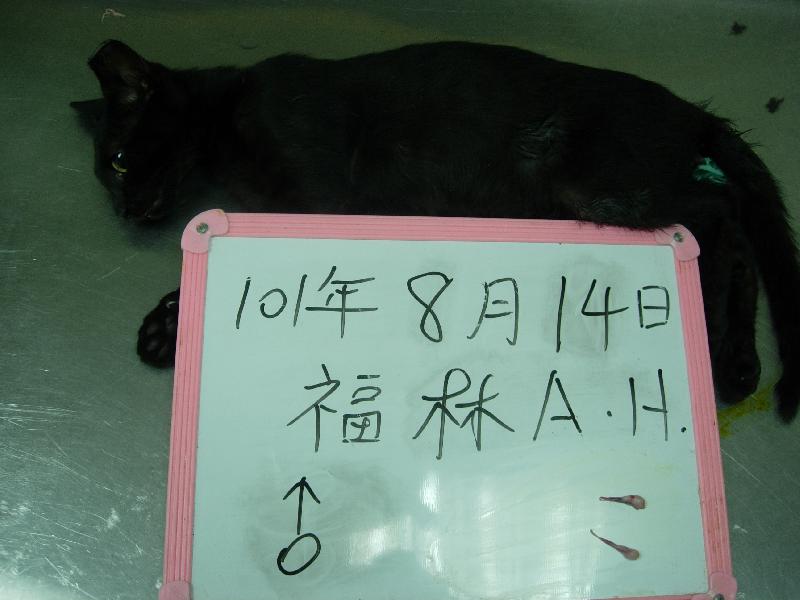 101年 8月 14日
福林 A.H.
♂